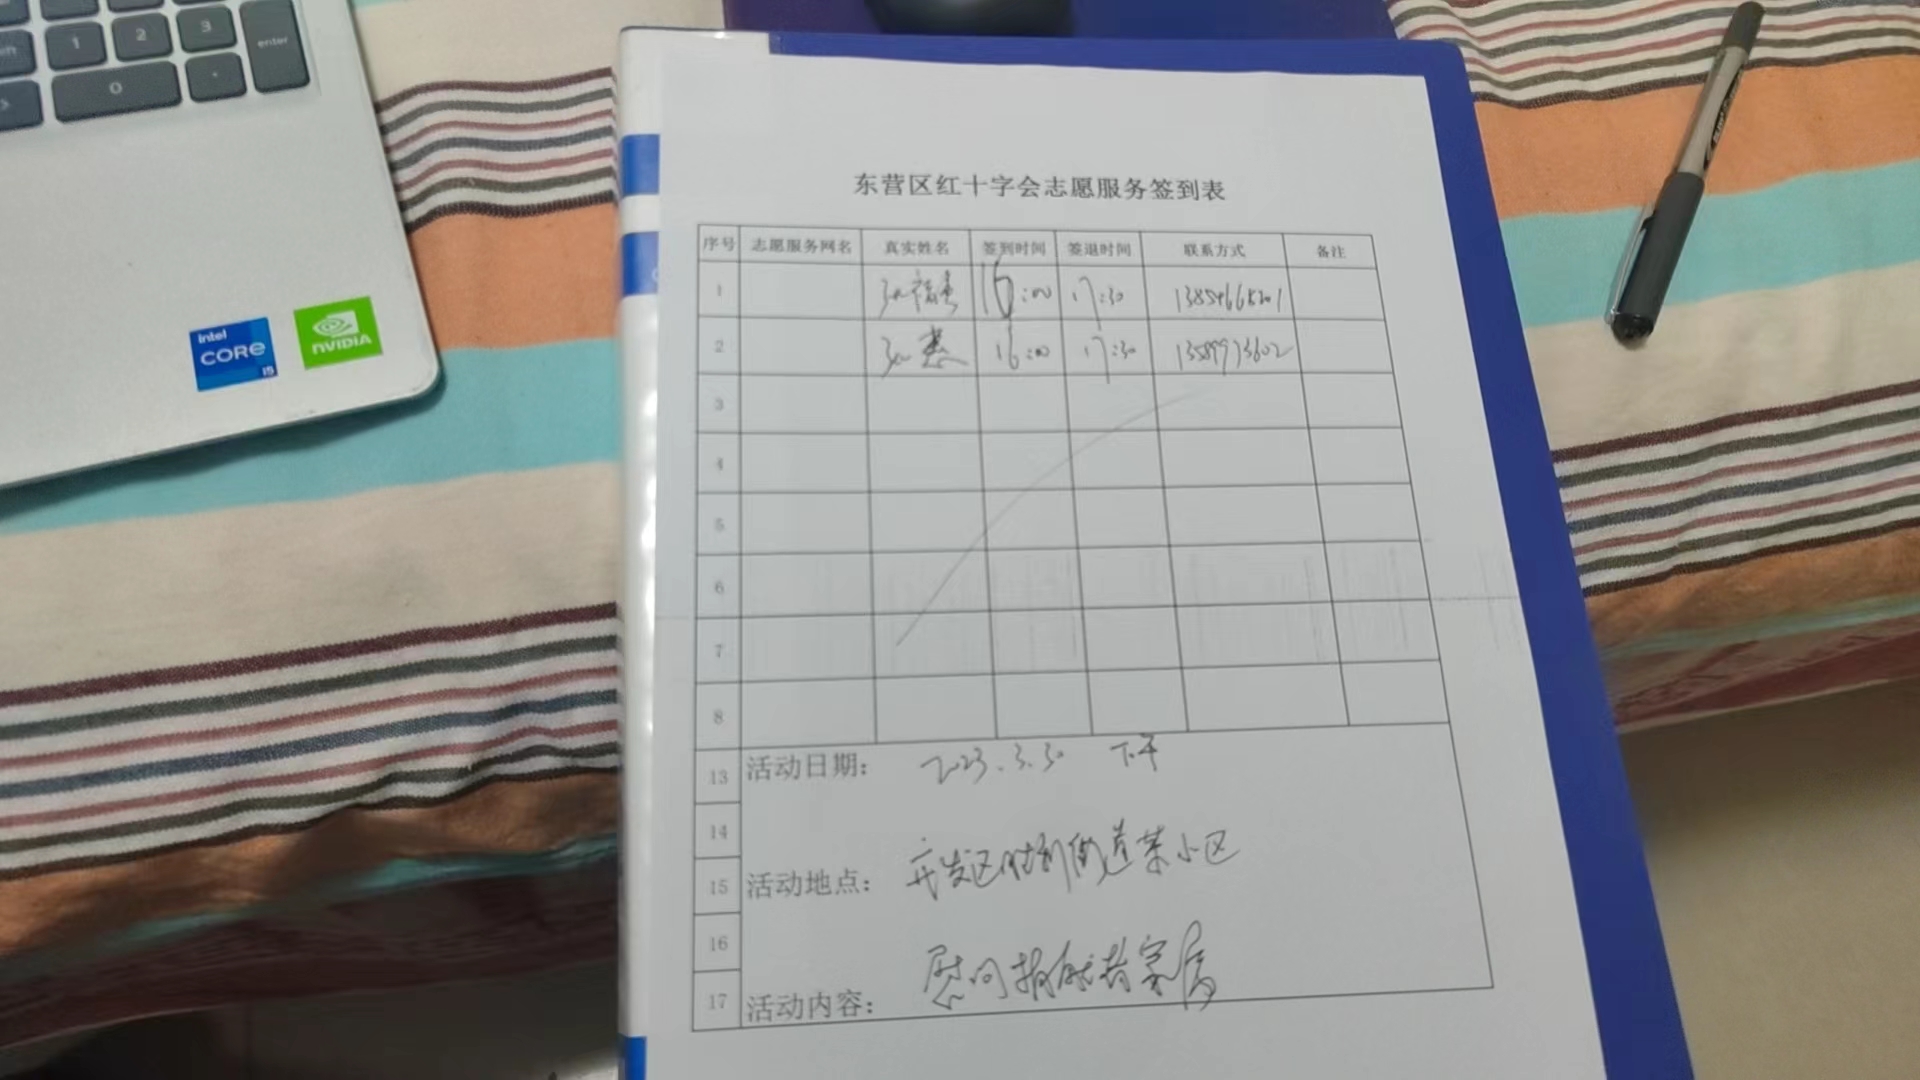 1 2 3 enter
0 .
intel CORE i5
NVIDIA
东营区红十字会志愿服务签到表
序号 志愿服务网名 真实姓名 签到时间 签退时间 联系方式 备注
1 16:00 17:30
2 16:00 17:30 13589973602
3
4
5
6
7
8
13 活动日期: 2023.3.30 下午
14
15 活动地点: 开发区胜利街道某小区
16
17 活动内容: 慰问捐献者家属